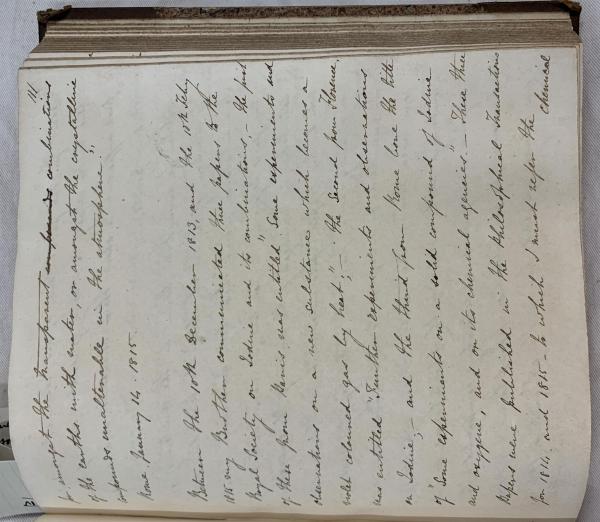 111
for amongst the transparent compounds combinations
of the earths with water, or amongst the crystalline
compounds unalterable in the atmosphere."
Rome January 14. 1815.
Between the 10th December 1813, and the 15th July
1815 my Brother communicated three papers to the
Royal Society on Iodine and its combinations, - The first
of these from Paris was entitled "Some experiments and
observations on a new substance which becomes a
violet coloured gas by heat"; - the second from Florence,
was entitled "Further experiments and observations
on Iodine"; - and the third from Rome bore the title
of "Some experiments on a solid compound of Iodine
and oxygene, and on its chemical agencies." - These three
papers were published in the Philosophical Transactions
for 1814. and 1815 - to which I must refer the chemical